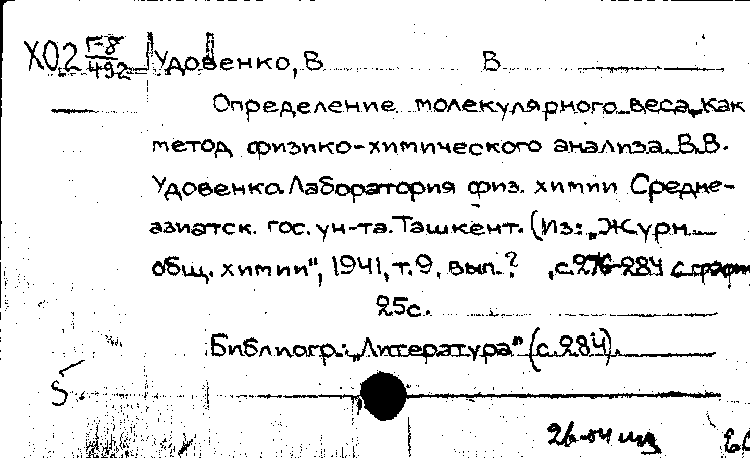 Х02 Г-8/492 Удовенко, В В
Определение молекулярного веса, как
метод физико-химического анализа. В.В.
Удовенко. Лаборатория физ. химии Средне-
азиатск. гос. ун-та. Ташкент. (Из: „Журн.
общ. химии", 1941, т.9, вып.? , с.276-284 с граф
25с.
Библиогр.: „Литература" (с.284).
5